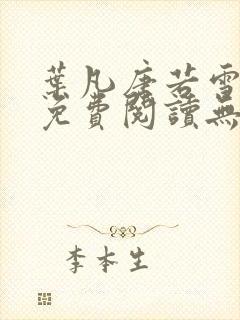 葉凡唐若雪
免費閱讀無
李本生